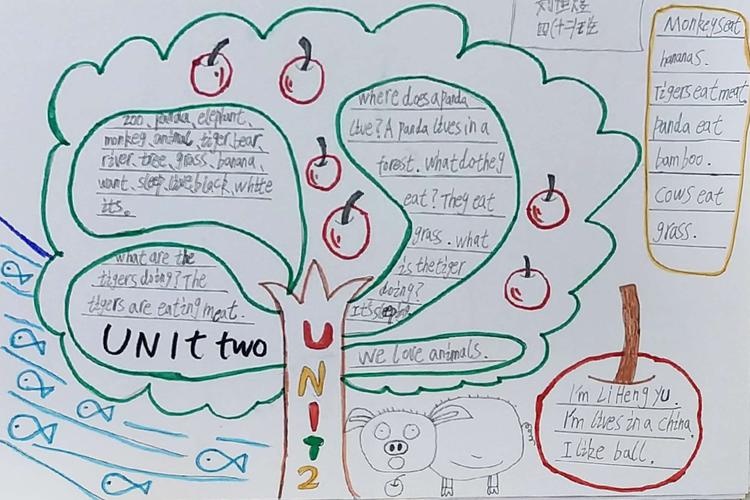 四(十二)班
zoo、panda、elephant、
monkey、animal、tiger、bear、
river、tree、grass、banana、
want、sleep、live、black、white
its。
where does a panda
live? A panda lives in a
forest. what do they
eat? They eat
grass. what
is the tiger
doing?
It's sleeping.
what are the
tigers doing? The
tigers are eating meat.
UNIt two
we love animals.
UNIT2
Monkeys eat
bananas.
Tigers eat meat
panda eat
bamboo.
cows eat
grass.
I'm Li Heng yu.
I'm lives in a china.
I like ball.